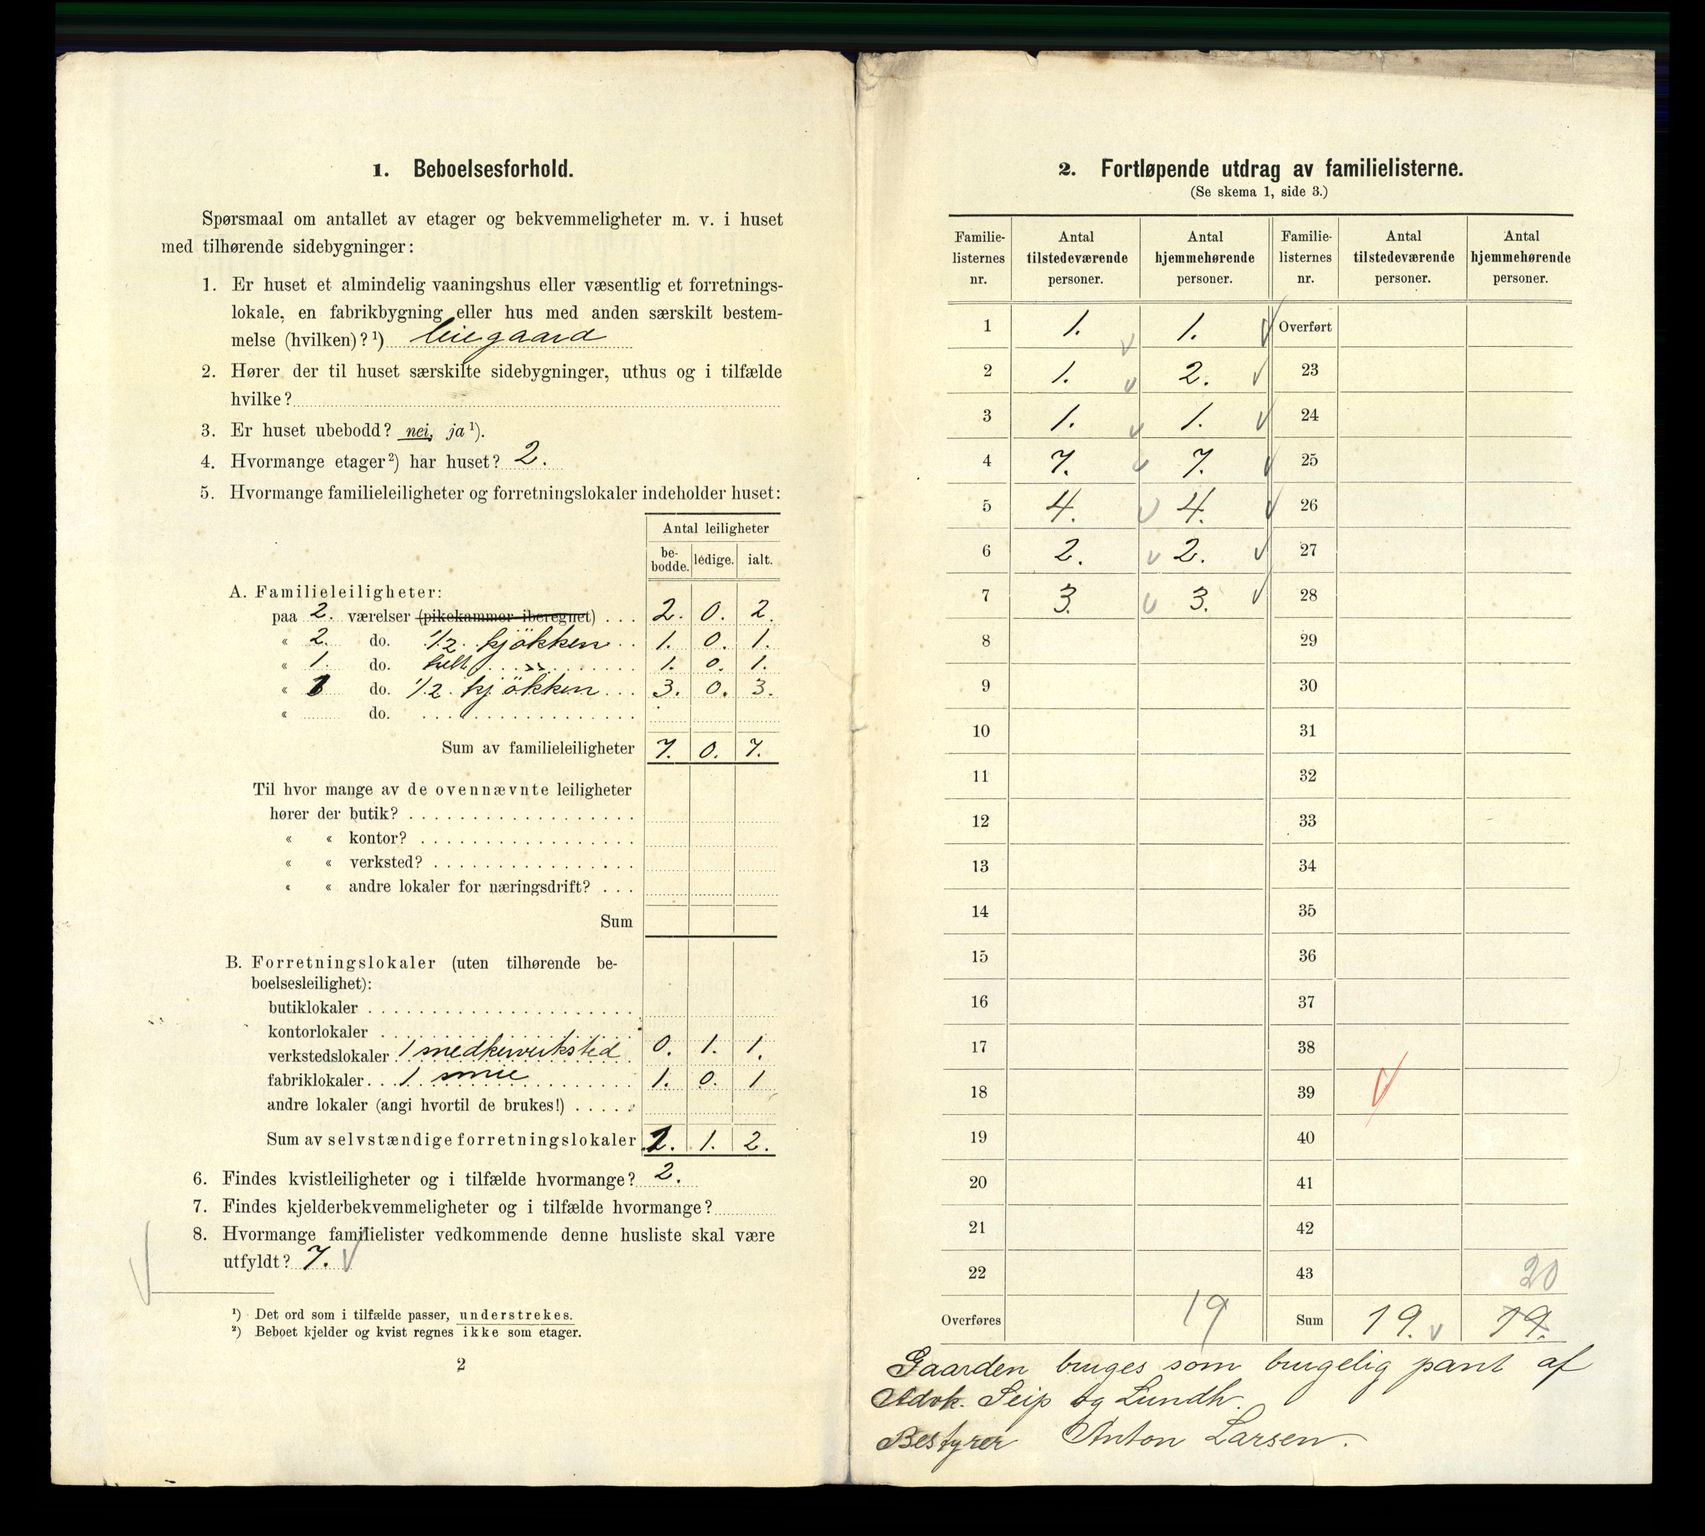 1. Beboelsesforhold.
Spørsmaal om antallet av etager og bekvemmeligheter m. v. i huset
med tilhørende sidebygninger:
1. Er huset et almindelig vaaningshus eller væsentlig et forretnings-
lokale, en fabrikbygning eller hus med anden særskilt bestem-
melse (hvilken)?¹) Leiegaard
2. Hører der til huset særskilte sidebygninger, uthus og i tilfælde
hvilke?
3. Er huset ubebodd? nei, ja¹).
4. Hvormange etager²) har huset? 2.
5. Hvormange familieleiligheter og forretningslokaler indeholder huset:
Antal leiligheter
be-bodde. ledige. ialt.
A. Familieleiligheter:
paa 2. værelser (pikekammer iberegnet) . . . 2. 0. 2.
« 2. do. 1/2 kjökken . . 1. 0. 1.
« 1. do. helt » . . . 1. 0. 1.
« 1 do. 1/2 kjökken . . . 3. 0. 3.
« do.
Sum av familieleiligheter 7. 0. 7.
Til hvor mange av de ovennævnte leiligheter
hører der butik?
« « kontor?
« « verksted?
« « andre lokaler for næringsdrift?
Sum
B. Forretningslokaler (uten tilhørende be-
boelsesleilighet):
butiklokaler
kontorlokaler
verkstedslokaler 1 snedkerverksted 0. 1. 1.
fabriklokaler 1 smie 1. 0. 1
andre lokaler (angi hvortil de brukes!)
Sum av selvstændige forretningslokaler 1. 1. 2.
6. Findes kvistleiligheter og i tilfælde hvormange? 2.
7. Findes kjelderbekvemmeligheter og i tilfælde hvormange?
8. Hvormange familielister vedkommende denne husliste skal være
utfyldt? 7.
¹) Det ord som i tilfælde passer, understrekes.
²) Beboet kjelder og kvist regnes ikke som etager.
2
2. Fortløpende utdrag av familielisterne.
(Se skema 1, side 3.)
Familie- Antal Antal Familie- Antal Antal
listernes tilstedeværende hjemmehørende listernes tilstedeværende hjemmehørende
nr. personer. personer. nr. personer. personer.
1 1. 1. Overført
2 1. 2. 23
3 1. 1. 24
4 7. 7. 25
5 4. 4. 26
6 2. 2. 27
7 3. 3. 28
8 29
9 30
10 31
11 32
12 33
13 34
14 35
15 36
16 37
17 38
18 39
19 40
20 41
21 42
22 43 20
Overføres 19 Sum 19. 19.
Gaarden bruges som brugelig pant af
Advk. Seip og Lundh.
Bestyrer Anton Larsen.